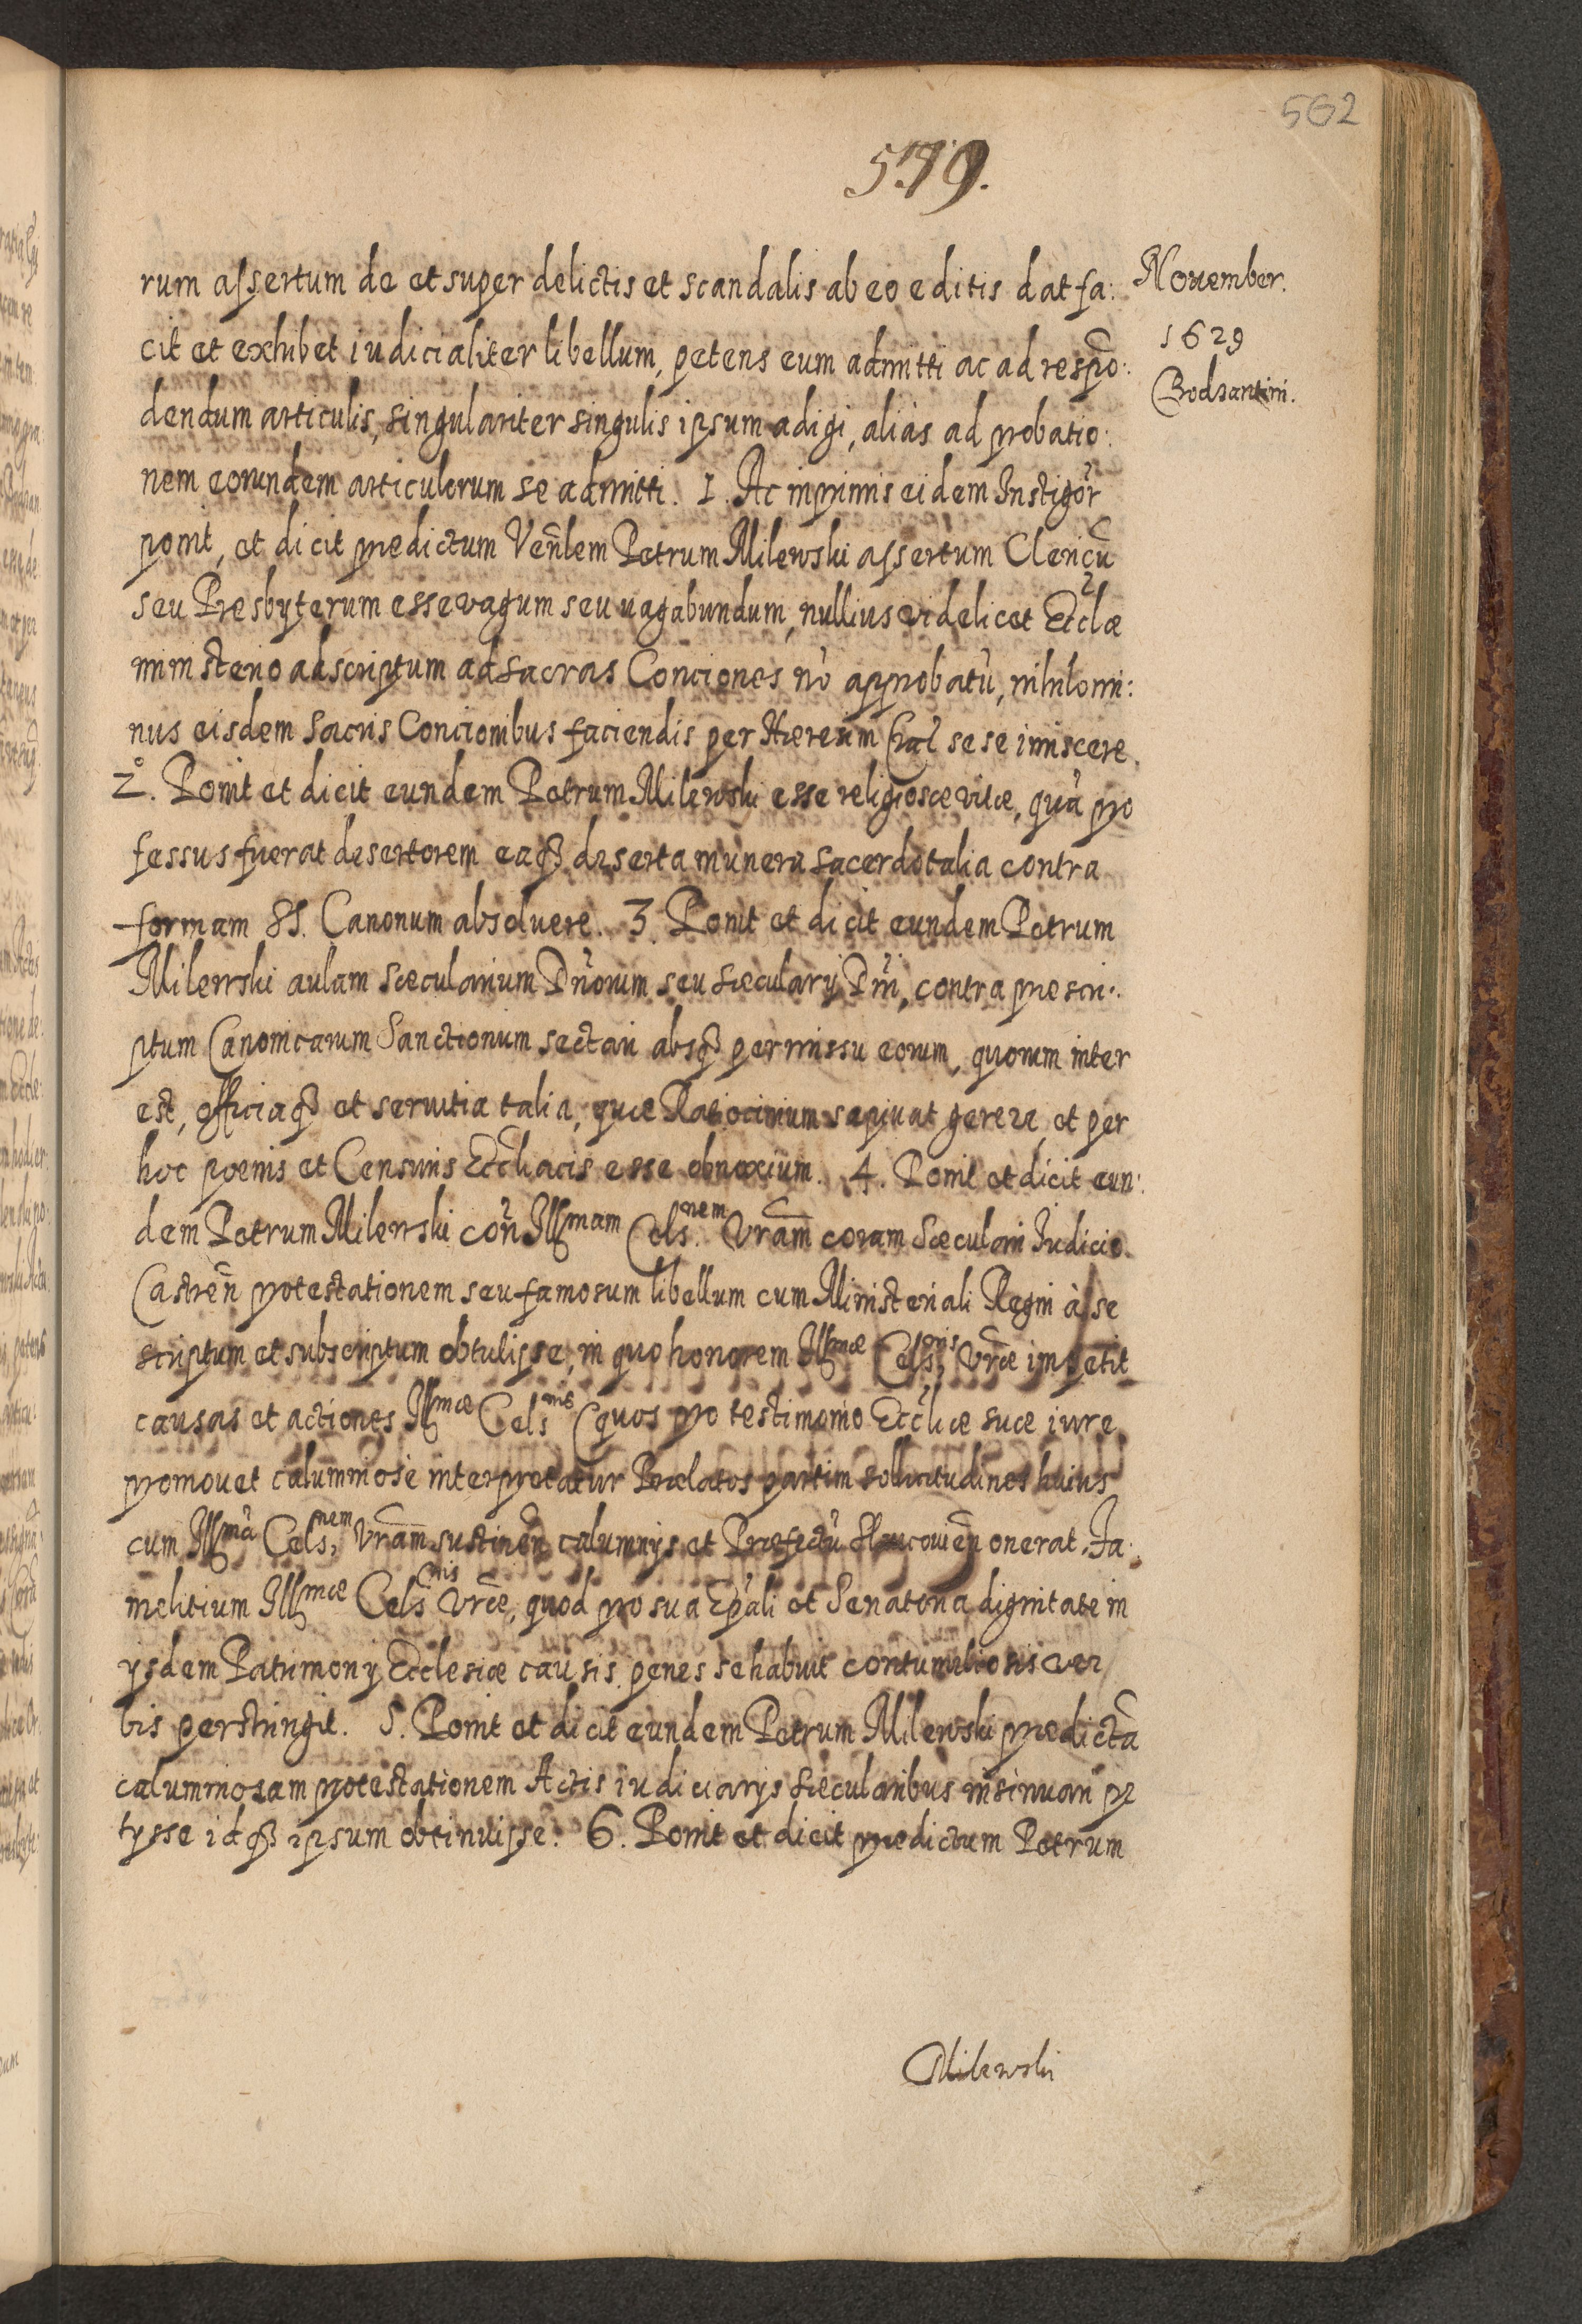 562
579.
November.
1629
Bodzantini.
rum assertum de et super delictis et scandalis ab eo editis dat fa:
cit et exhibet iudicialiter libellum, petens eum admitti ac ad respõ:
dendum articulis, singulariter singulis ipsum adigi, alias ad probatio:
nem eorundem articulorum se admitti. 1. Ac inprimis eidem Instigor
ponit, et dicit predictum Venlem Petrum Milewski assertum Clericũ
seu Presbyterum esse vagum seu uagabundum, nullius videlicet Ecclæ
ministerio adscriptum ad sacras Conciones nõ approbatũ, nihilomi:
nus eisdem Sacris Concionibus faciendis per sese imiscere.
2º. Ponit et dicit eundem Petrum Milewski esse religiosæ vitæ, quã pro
fessus fuerat desertorem eaq3 deserta munera sacerdotalia contra
formam SS. Canonum absoluere. 3. Ponit et dicit eundem Petrum
Milewski aulam sæcularium Dnorum seu sæculary Dni, contra prescri:
ptum Canonicarum Sanctionum sectari absq3 permissu eorum, quorum inter
est, officiaq3 et seruitia talia, quæ Ratiocinium sapiuat gerere, et per
hoc poenis et Censuris Eccliacis esse obnoxium. 4. Ponit et dicit eun:
dem Petrum Milewski con Illmam Cels.nem Vram coram Sæculari Iudicio
Castren protestationem seu famosum libellum cum Ministeriali Regni à se
scriptum et subscriptum obtulisse, in quo honorem Illmæ Cels.nis Vræ impetit
causas et actiones Illmæ Celsnis (quos pro testimonio Eccliæ suæ iure
promouet calumniose interpretatur Prælatos partim sollicitudines huius
cum Illmã Cels.nem Vram sustinen calumnijs et Præfectũ onerat. Fa:
melitium Illmæ Celsnis Vræ, quod pro sua Epali et Senatoria dignitate in
ysdem Patrimony Ecclesiæ causis penes se habuit contumeliosis ver
bis perstringit. 5. Ponit et dicit eundem Petrum Milewski predictã
calumniosam protestationem Actis iudiciarys sæcularibus insinuari pe
tysse idq3 ipsum obtinuisse. 6. Ponit et dicit predictum Petrum
Milewski